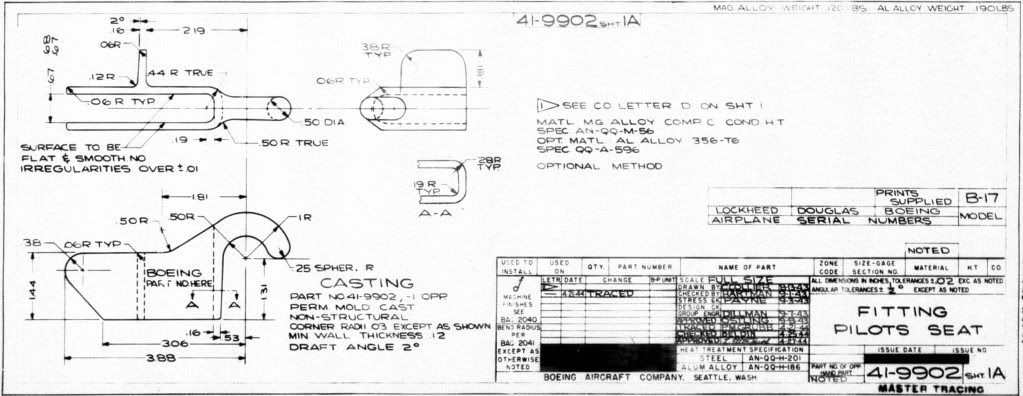 MAG ALLOY WEIGHT .120 LBS. AL ALLOY WEIGHT .190LBS
41-9902 SHT 1A
2°
.16
2.19
.06R
.68
.67
.12R
.44 R TRUE
.67
.06R TYP
.50 DIA
.50R TRUE
.19
SURFACE TO BE
FLAT & SMOOTH. NO
IRREGULARITIES OVER ±.01
.38R
TYP
.06R TYP
.81
.28R
TYP
.19 R
TYP
A-A
1 SEE CO LETTER D ON SHT 1
MATL MG ALLOY COMP C COND HT
SPEC AN-QQ-M-56
OPT. MATL. AL ALLOY 356-T6
SPEC QQ-A-596
OPTIONAL METHOD
1.81
.50R
.50R
.1R
.38
.06R TYP
BOEING
PART NO. HERE
A
A
.25 SPHER. R
1.44
1.31
.16
.53
3.06
3.88
CASTING
PART NO. 41-9902, -1 OPP
PERM. MOLD CAST
NON-STRUCTURAL
CORNER RADII .03 EXCEPT AS SHOWN
MIN WALL THICKNESS .12
DRAFT ANGLE 2°
PRINTS
SUPPLIED
B-17
LOCKHEED DOUGLAS BOEING
MODEL
AIRPLANE SERIAL NUMBERS
NOTED
USED TO INSTALL
USED ON
QTY.
PART NUMBER
NAME OF PART
ZONE CODE
SIZE-GAGE SECTION NO.
MATERIAL
HT
CO.
LETR DATE CHANGE B-P UNIT
4-21-44 TRACED
MACHINE
FINISHES
SEE
BAC 2040
BEND RADIUS
PER
BAC 2041
EXCEPT AS
OTHERWISE
NOTED
SCALE FULL SIZE
DRAWN BY COLLIER
CHECKED BY HARTMAN
STRESS CK PAYNE 9-3-43
DESIGN CK
GROUP ENG DILLMAN 9-7-43
APPROVED OSTLING
TRACED
CHECKED BELDIN
APPROVED
HEAT TREATMENT SPECIFICATION
STEEL AN-QQ-H-201
ALUM ALLOY AN-QQ-H-186
ALL DIMENSIONS IN INCHES, TOLERANCES ±.02 EXC AS NOTED
ANGULAR TOLERANCES ± ½° EXCEPT AS NOTED
FITTING
PILOTS SEAT
ISSUE DATE
ISSUE NO.
PART NO. OF OPP
HAND PART
NOTED
41-9902 SHT 1A
BOEING AIRCRAFT COMPANY, SEATTLE, WASH
MASTER TRACING